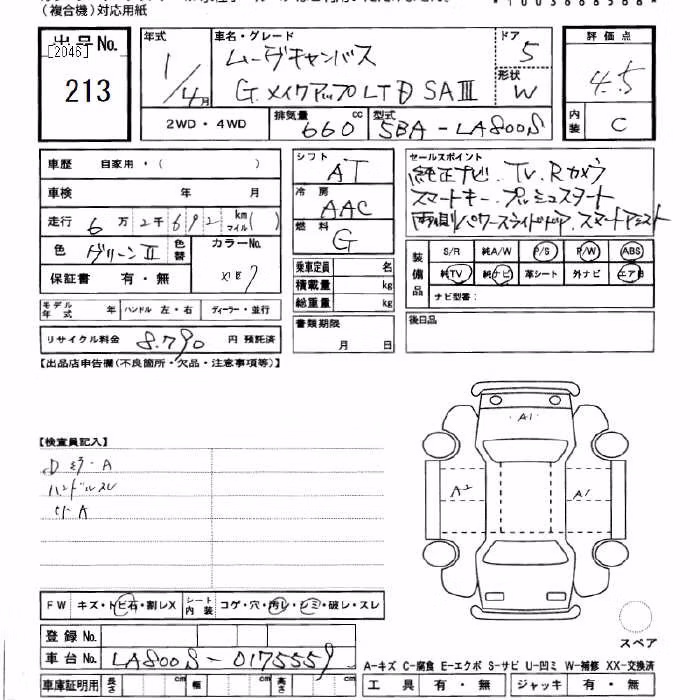 (複合機)対応用紙
出品No.
[2046]
213
年式
1/4月
車名・グレード
ムーヴキャンバス
G.メイクアップLTD SAⅢ
ドア
5
形状
W
評価点
4.5
内装
C
2WD・4WD
排気量 660 cc
型式 5BA-LA800S
車歴 自家用・( )
車検 年 月
走行 6万2千692 km マイル( )
色 グリーンⅡ 色替
カラーNo.
保証書 有・無
シフト
AT
冷房
AAC
燃料
G
乗車定員 名
積載量 kg
総重量 kg
書類期限
月 日
セールスポイント
純正ナビ.TV.Rカメラ
スマートキー.プッシュスタート
両側パワースライドドア.スマートアシスト
装備品
S/R 純A/W P/S P/W ABS
純TV 純ナビ 革シート 外ナビ エアB
ナビ型番:
後日品
モデル年式 年 ハンドル 左・右 ディーラー・並行
リサイクル料金 8.790 円 預託済
【出品店申告欄(不良箇所・欠品・注意事項等)】
【検査員記入】
ハンドルスレ
A1
A2
A1
FW キズ・トビ石・割レX シート内装 コゲ・穴・汚レ・シミ・破レ・スレ
登録No.
車台No. LA800S-0175559
車庫証明用 長さ cm 幅 cm 高さ cm
スペア
A-キズ C-腐食 E-エクボ S-サビ U-凹ミ W-補修 XX-交換済
工具 有・無 ジャッキ 有・無